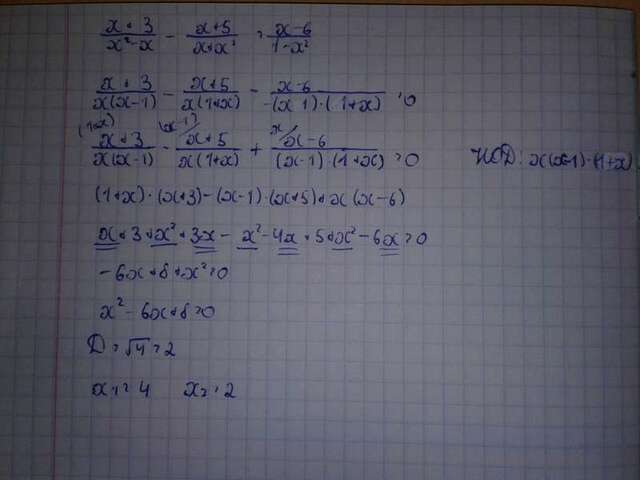 (x+3)/(x²-x) - (x+5)/(x+x²) = (x-6)/(1-x²)
(x+3)/(x(x-1)) - (x+5)/(x(1+x)) - (x-6)/(-(x-1)·(1+x)) = 0
(1+x) (x-1) x
(x+3)/(x(x-1)) - (x+5)/(x(1+x)) + (x-6)/((x-1)·(1+x)) = 0 НОД: x(x-1)·(1+x)
(1+x)·(x+3)-(x-1)·(x+5)+x(x-6)
x+3+x²+3x-x²-4x+5+x²-6x=0
-6x+8+x²=0
x²-6x+8=0
D=√4=2
x₁=4 x₂=2